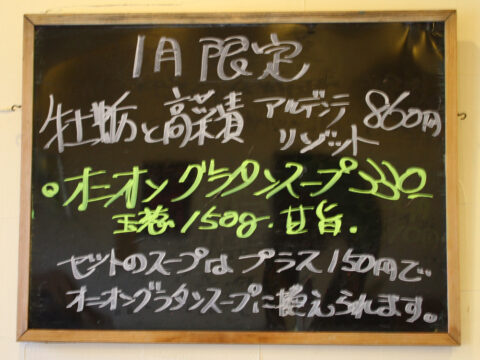 1月限定
牡蛎と高菜漬 アルデンテリゾット 860円
・オニオングラタンスープ 330-
玉葱150g.甘旨.
セットのスープはプラス150円で
オニオングラタンスープに換えられます。